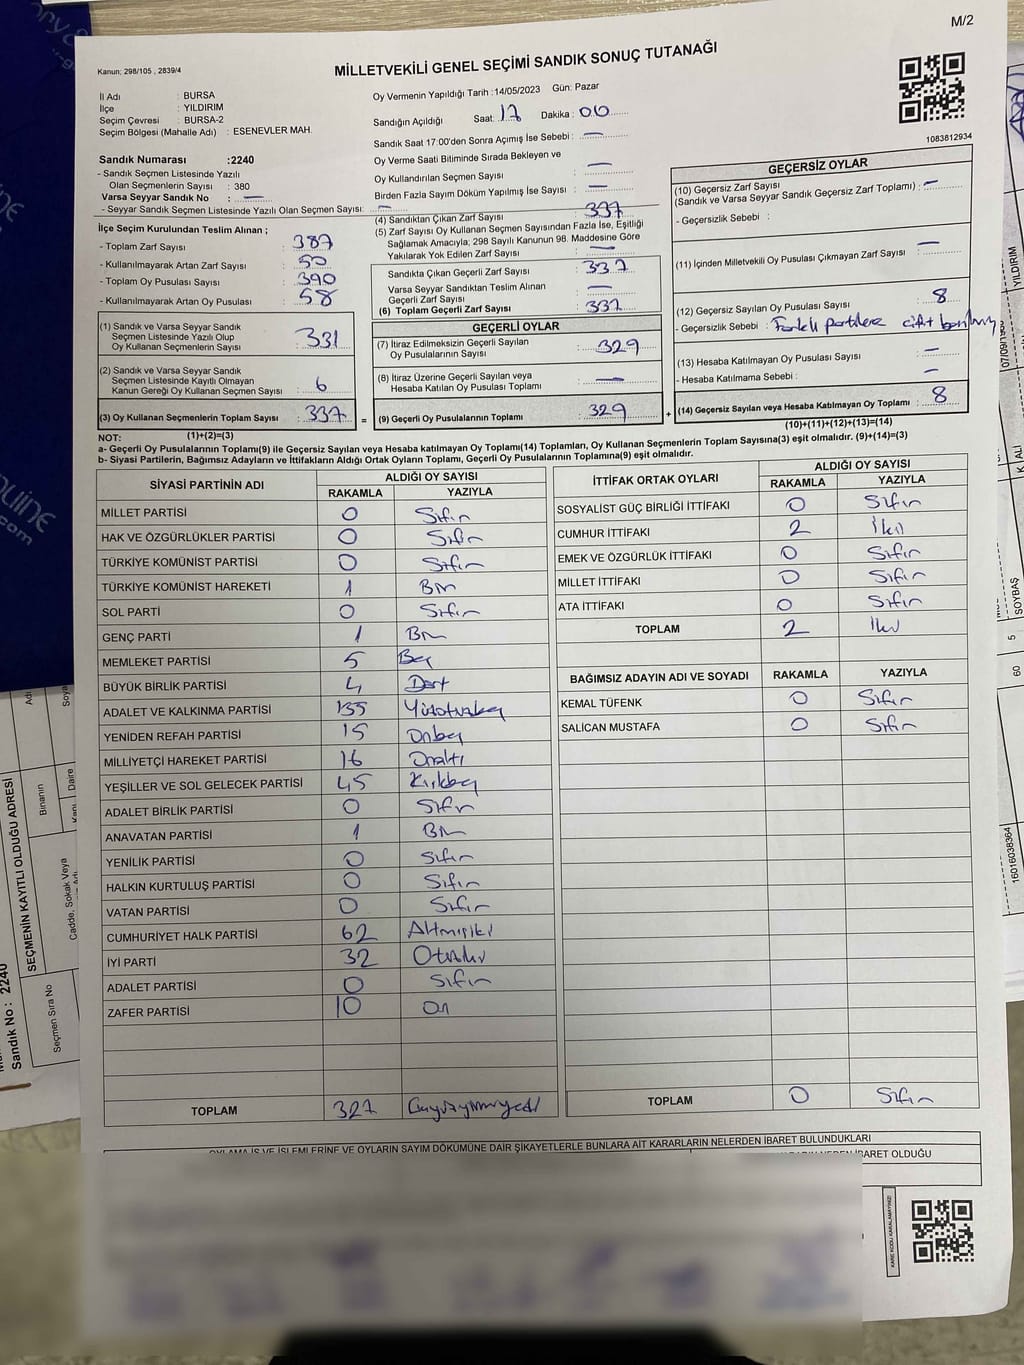 M/2
Kanun; 298/105 , 2839/4
MİLLETVEKİLİ GENEL SEÇİMİ SANDIK SONUÇ TUTANAĞI
İl Adı : BURSA
İlçe : YILDIRIM
Seçim Çevresi : BURSA-2
Seçim Bölgesi (Mahalle Adı) : ESENEVLER MAH.
Oy Vermenin Yapıldığı Tarih :14/05/2023 Gün: Pazar
Sandığın Açıldığı Saat: 17 Dakika : 00
Sandık Saat 17:00'den Sonra Açılmış İse Sebebi : —
Oy Verme Saati Bitiminde Sırada Bekleyen ve
Oy Kullandırılan Seçmen Sayısı : —
Birden Fazla Sayım Döküm Yapılmış İse Sayısı : —
1083612934
Sandık Numarası :2240
- Sandık Seçmen Listesinde Yazılı
Olan Seçmenlerin Sayısı : 380
Varsa Seyyar Sandık No : —
- Seyyar Sandık Seçmen Listesinde Yazılı Olan Seçmen Sayısı: —
İlçe Seçim Kurulundan Teslim Alınan ;
- Toplam Zarf Sayısı : 387
- Kullanılmayarak Artan Zarf Sayısı : 50
- Toplam Oy Pusulası Sayısı : 390
- Kullanılmayarak Artan Oy Pusulası : 58
(1) Sandık ve Varsa Seyyar Sandık
Seçmen Listesinde Yazılı Olup
Oy Kullanan Seçmenlerin Sayısı : 331
(2) Sandık ve Varsa Seyyar Sandık
Seçmen Listesinde Kayıtlı Olmayan
Kanun Gereği Oy Kullanan Seçmen Sayısı : 6
(3) Oy Kullanan Seçmenlerin Toplam Sayısı : 337 =
(1)+(2)=(3)
(4) Sandıktan Çıkan Zarf Sayısı : 337
(5) Zarf Sayısı Oy Kullanan Seçmen Sayısından Fazla İse, Eşitliği
Sağlamak Amacıyla; 298 Sayılı Kanunun 98. Maddesine Göre
Yakılarak Yok Edilen Zarf Sayısı : —
Sandıkta Çıkan Geçerli Zarf Sayısı : 337
Varsa Seyyar Sandıktan Teslim Alınan
Geçerli Zarf Sayısı : —
(6) Toplam Geçerli Zarf Sayısı : 337
GEÇERLİ OYLAR
(7) İtiraz Edilmeksizin Geçerli Sayılan
Oy Pusulalarının Sayısı : 329
(8) İtiraz Üzerine Geçerli Sayılan veya
Hesaba Katılan Oy Pusulası Toplamı : —
(9) Geçerli Oy Pusulalarının Toplamı : 329 +
GEÇERSİZ OYLAR
(10) Geçersiz Zarf Sayısı
(Sandık ve Varsa Seyyar Sandık Geçersiz Zarf Toplamı) : —
- Geçersizlik Sebebi :
(11) İçinden Milletvekili Oy Pusulası Çıkmayan Zarf Sayısı : —
(12) Geçersiz Sayılan Oy Pusulası Sayısı : 8
- Geçersizlik Sebebi : Farklı partilere çift basılmış
(13) Hesaba Katılmayan Oy Pusulası Sayısı : —
- Hesaba Katılmama Sebebi : —
(14) Geçersiz Sayılan veya Hesaba Katılmayan Oy Toplamı : 8
(10)+(11)+(12)+(13)=(14)
NOT:
a- Geçerli Oy Pusulalarının Toplamı(9) ile Geçersiz Sayılan veya Hesaba katılmayan Oy Toplamı(14) Toplamları, Oy Kullanan Seçmenlerin Toplam Sayısına(3) eşit olmalıdır. (9)+(14)=(3)
b- Siyasi Partilerin, Bağımsız Adayların ve İttifakların Aldığı Ortak Oyların Toplamı, Geçerli Oy Pusulalarının Toplamına(9) eşit olmalıdır.
SİYASİ PARTİNİN ADI ALDIĞI OY SAYISI
RAKAMLA YAZIYLA
MİLLET PARTİSİ 0 Sıfır
HAK VE ÖZGÜRLÜKLER PARTİSİ 0 Sıfır
TÜRKİYE KOMÜNİST PARTİSİ 0 Sıfır
TÜRKİYE KOMÜNİST HAREKETİ 1 Bir
SOL PARTİ 0 Sıfır
GENÇ PARTİ 1 Bir
MEMLEKET PARTİSİ 5 Beş
BÜYÜK BİRLİK PARTİSİ 4 Dört
ADALET VE KALKINMA PARTİSİ 135 Yüzotuzbeş
YENİDEN REFAH PARTİSİ 15 Onbeş
MİLLİYETÇİ HAREKET PARTİSİ 16 Onaltı
YEŞİLLER VE SOL GELECEK PARTİSİ 45 Kırkbeş
ADALET BİRLİK PARTİSİ 0 Sıfır
ANAVATAN PARTİSİ 1 Bir
YENİLİK PARTİSİ 0 Sıfır
HALKIN KURTULUŞ PARTİSİ 0 Sıfır
VATAN PARTİSİ 0 Sıfır
CUMHURİYET HALK PARTİSİ 62 Altmışiki
İYİ PARTİ 32 Otuziki
ADALET PARTİSİ 0 Sıfır
ZAFER PARTİSİ 10 On
TOPLAM 327 Üçyüzyirmiyedi
İTTİFAK ORTAK OYLARI ALDIĞI OY SAYISI
RAKAMLA YAZIYLA
SOSYALİST GÜÇ BİRLİĞİ İTTİFAKI 0 Sıfır
CUMHUR İTTİFAKI 2 İki
EMEK VE ÖZGÜRLÜK İTTİFAKI 0 Sıfır
MİLLET İTTİFAKI 0 Sıfır
ATA İTTİFAKI 0 Sıfır
TOPLAM 2 İki
BAĞIMSIZ ADAYIN ADI VE SOYADI RAKAMLA YAZIYLA
KEMAL TÜFENK 0 Sıfır
SALİCAN MUSTAFA 0 Sıfır
TOPLAM 0 Sıfır
OYLAMA İŞ VE İŞLEMLERİNE VE OYLARIN SAYIM DÖKÜMÜNE DAİR ŞİKAYETLERLE BUNLARA AİT KARARLARIN NELERDEN İBARET BULUNDUKLARI
İBARET OLDUĞU
KARE KODU KARALAMAYINIZ!
Sandık No : 2240
SEÇMENİN KAYITLI OLDUĞU ADRESİ
Seçmen Sıra No
Cadde, Sokak Veya
Binanın
Kapı Daire
Adı
Soya
YILDIRIM
ALİ
SOYBAŞ
5
60
16016038364